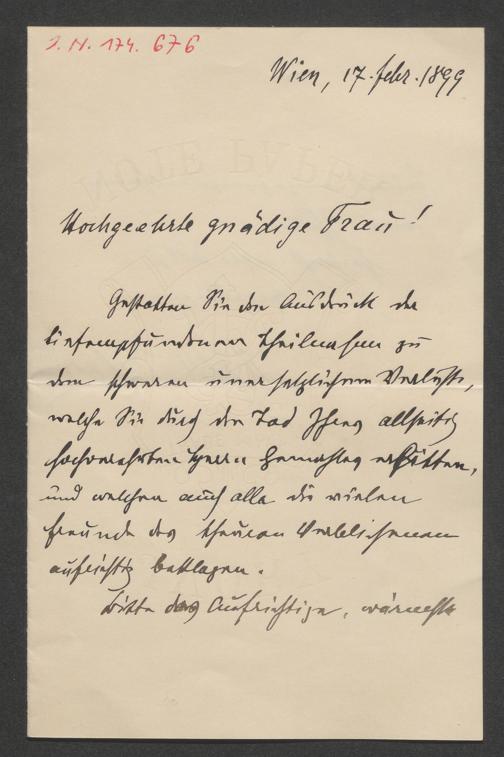 I. N. 174. 676
Wien, 17. febr. 1899
NOTE PAPER
Hochgeehrte gnädige Frau!
Gestatten Sie den Ausdruck der
tiefempfundenen Theilnahme zu
dem schweren unersetzlichen Verluste,
welche Sie durch den Tod Ihres allseitig
hochverehrten Herrn Gemahles erlitten,
und welchen auch alle die vielen
Freunde des theuren Verblichenen
aufrichtig beklagen.
Bitte das Aufrichtige, wärmste